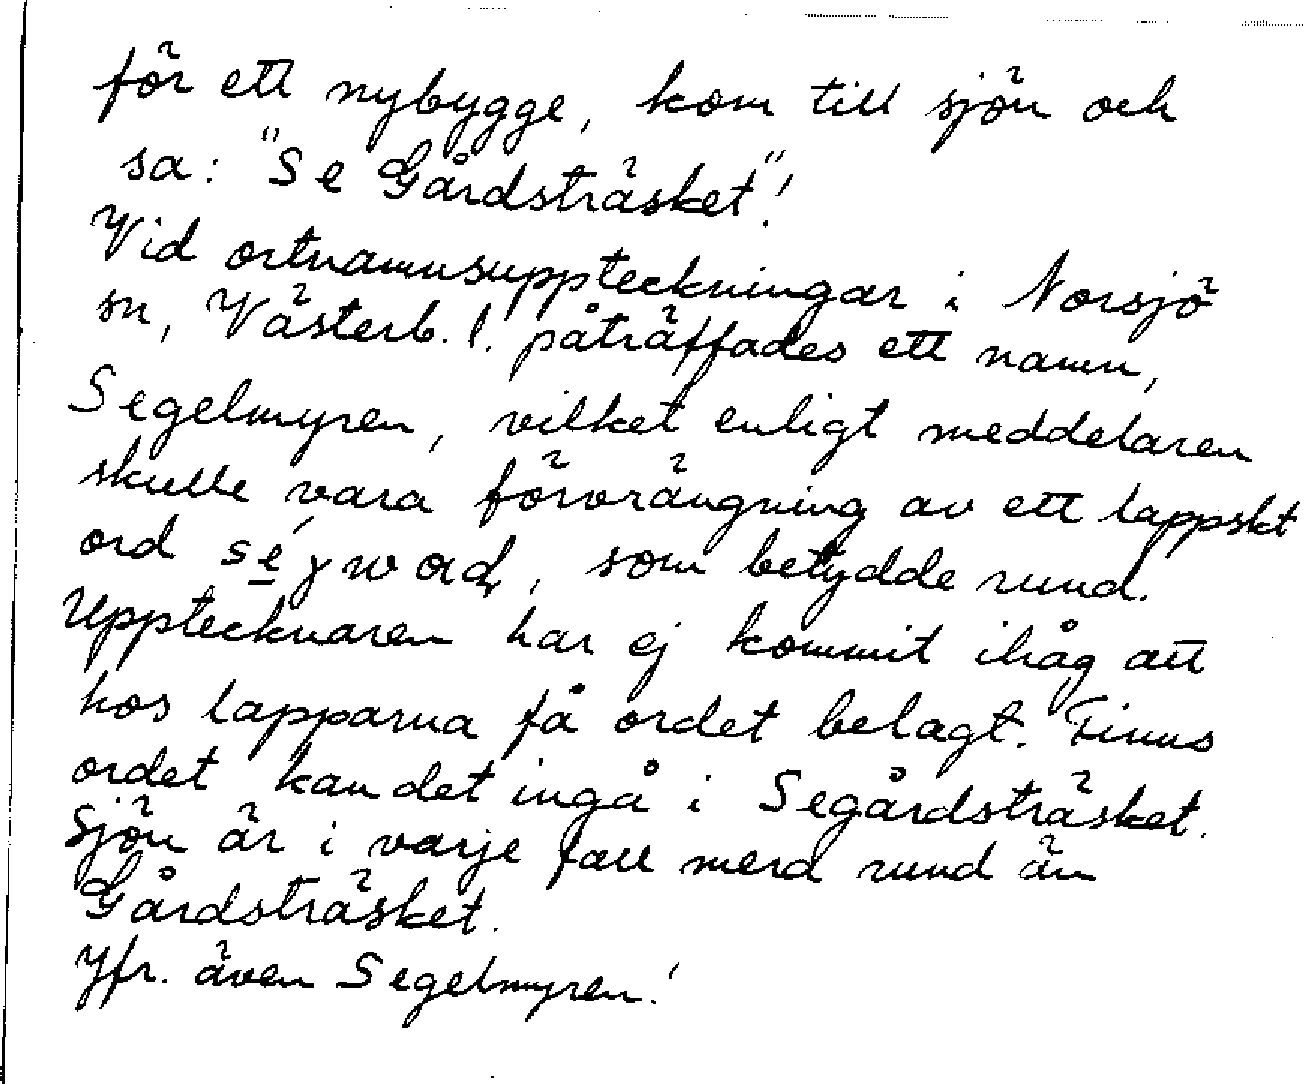 för ett nybygge, kom till sjön och
sa: "Se Gårdsträsket"!
Vid ortnamnsuppteckningar i Norsjö
sn, Västerb. l. påträffades ett namn,
Segelmyren, vilket enligt meddelaren
skulle vara förvrängning av ett lappskt
ord som betydde rund.
Upptecknaren har ej kommit ihåg att
hos lapparna få ordet belagt. Finns
ordet kan det ingå i Segårdsträsket.
Sjön är i varje fall mera rund än
Gårdsträsket.
Jfr. även Segelmyren!